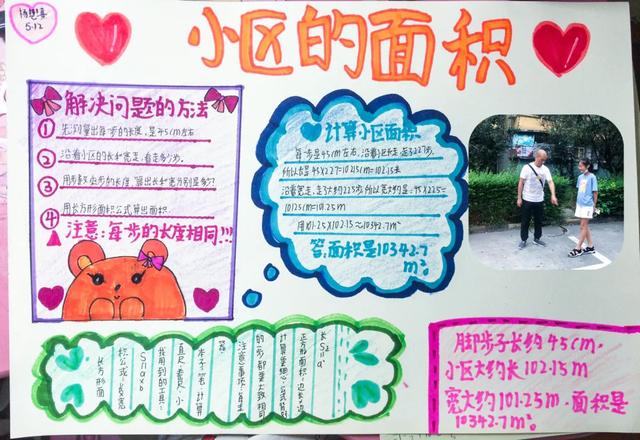 5.12
小区的面积
解决问题的方法
① 先测量出每一步的长度,是45cm左右
② 沿着小区的长和宽走,看走多少步。
③ 用步数×步的长度,算出长和宽分别是多少?
④ 用长方形面积公式算出面积。
注意:每步的长度相同!!!
计算小区面积
每一步是45cm左右,沿着小区长走,走了227步,
所以长是45×227=10215cm=102.15米
沿着宽走,走了大约225步,所以宽大约是:45×225=
10125cm=101.25m
用101.25×102.15≈10342.7m²
答:面积是10342.7
m²。
长方形面
积公式:长×宽
S=a×b
我用到的工具:
直尺、卷尺、小
本子、笔、计算
注意事项:每走
的一步都要大致相同
正方形面积:边长×边
长S=a²
脚步子长约45cm.
小区大约长102.15m
宽大约101.25m.面积是
10342.7m²。